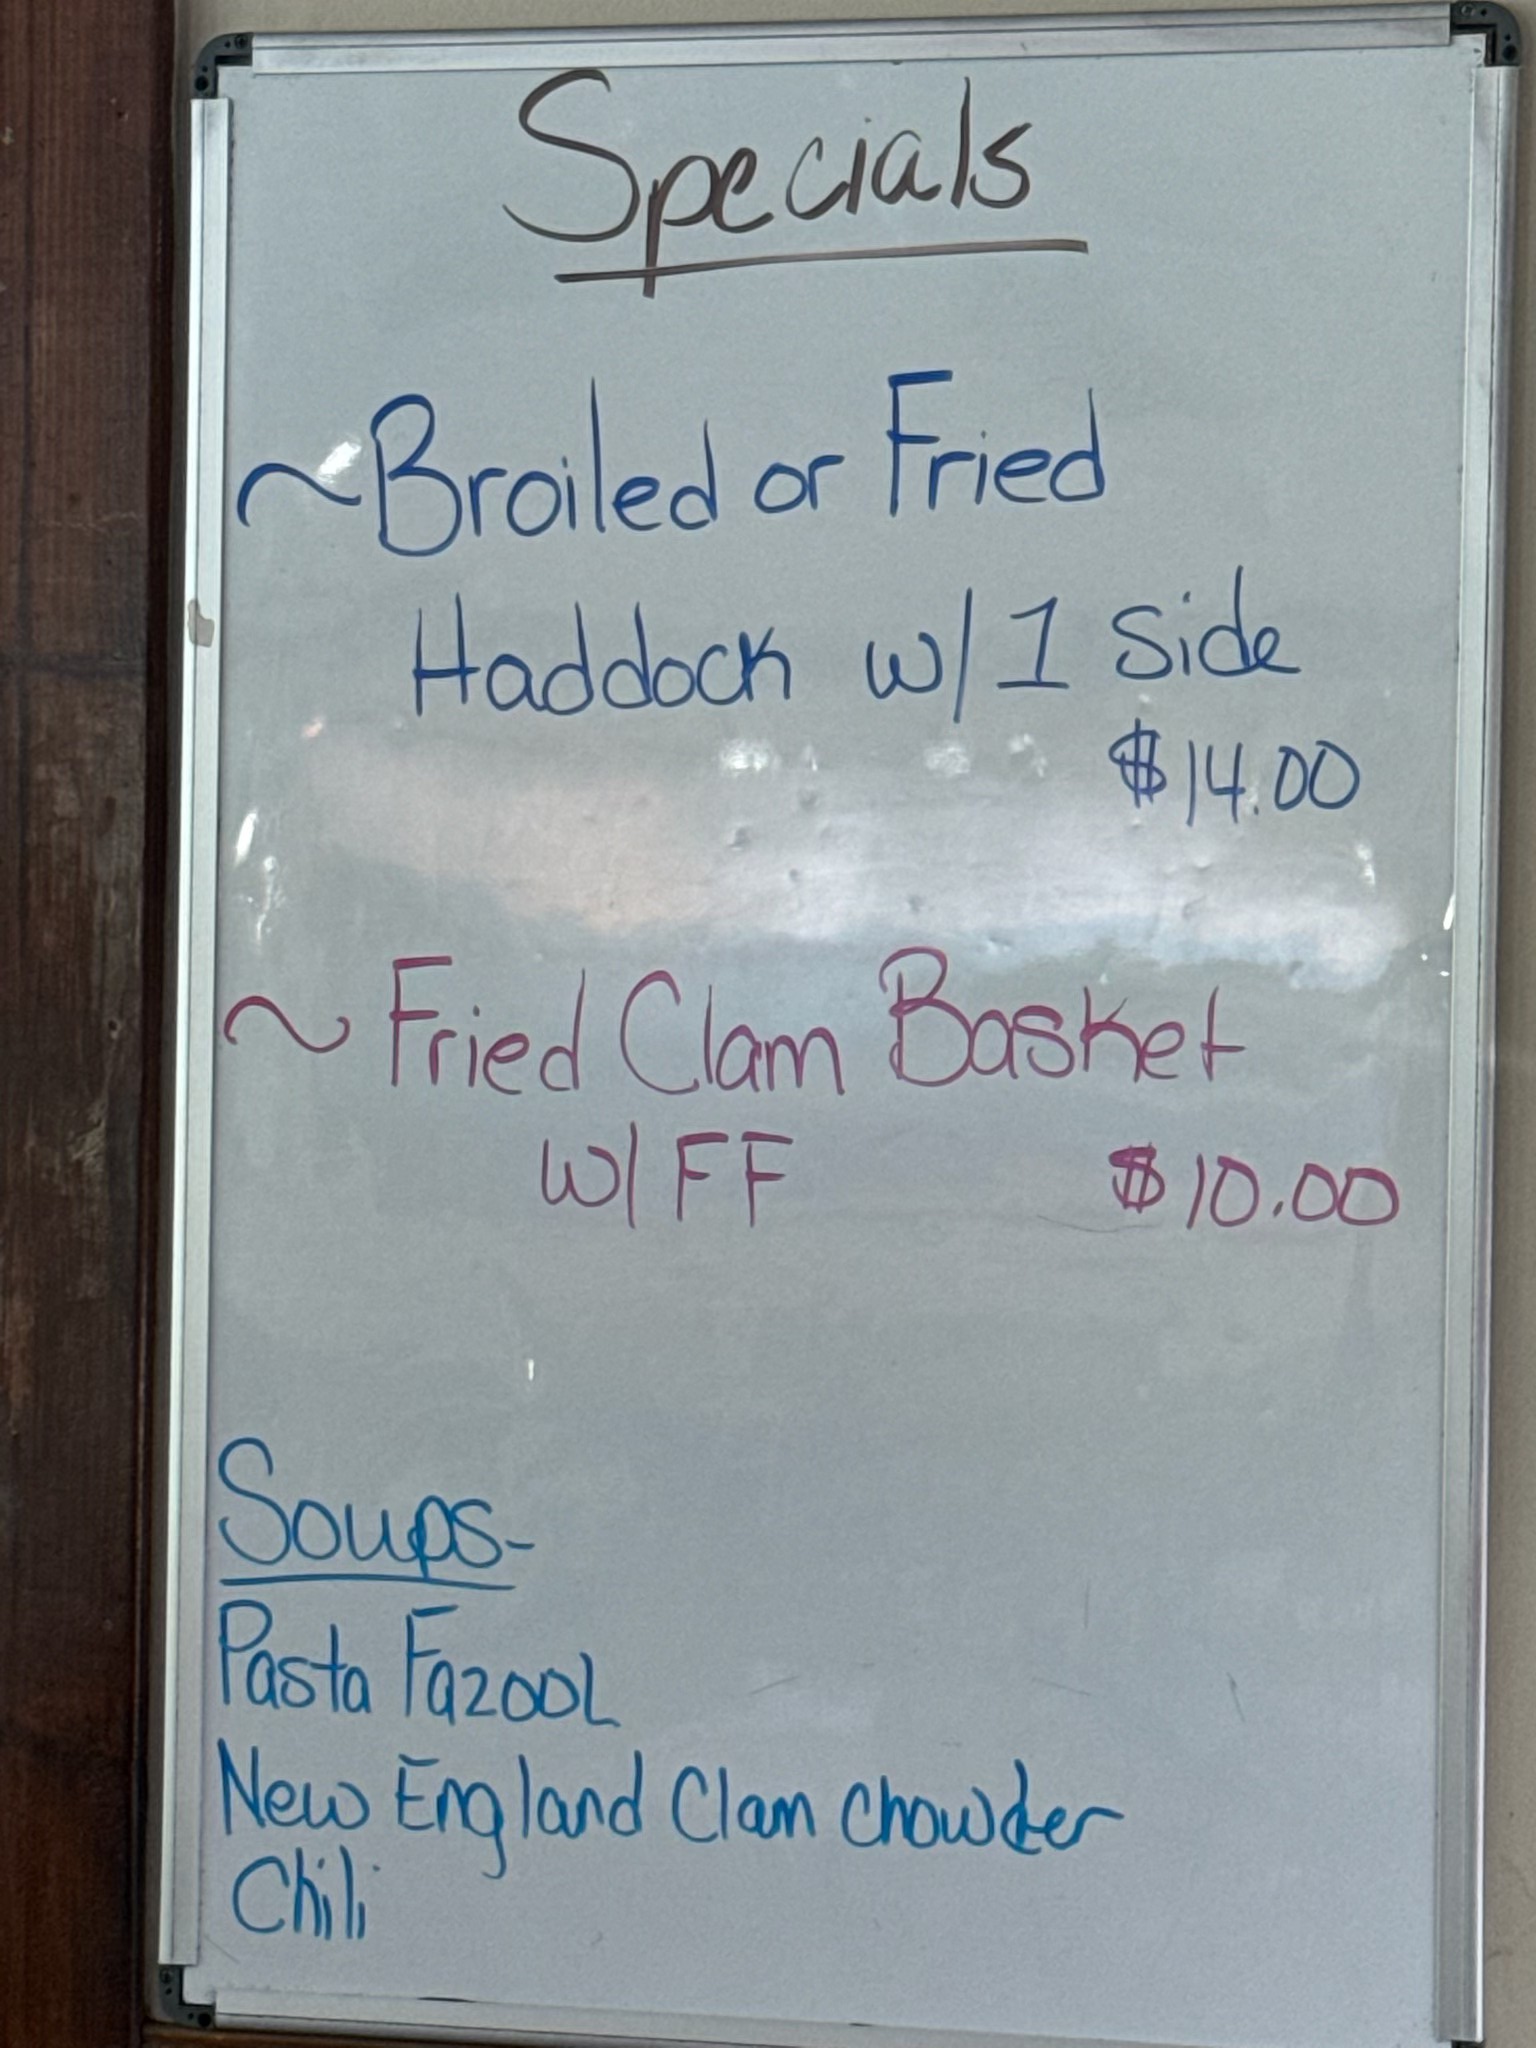 Specials
~Broiled or Fried
Haddock w/ 1 Side
$14.00
~ Fried Clam Basket
w/ FF $10.00
Soups-
Pasta FazooL
New England Clam Chowder
Chili